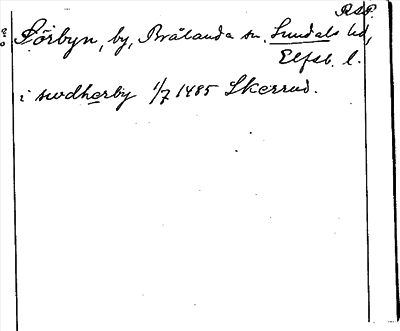 RAP.
Sörbyn, by, Brålanda sn. Sundals hd,
Elfsb. l.
i swdherby 1/7 1485 Skerrud.